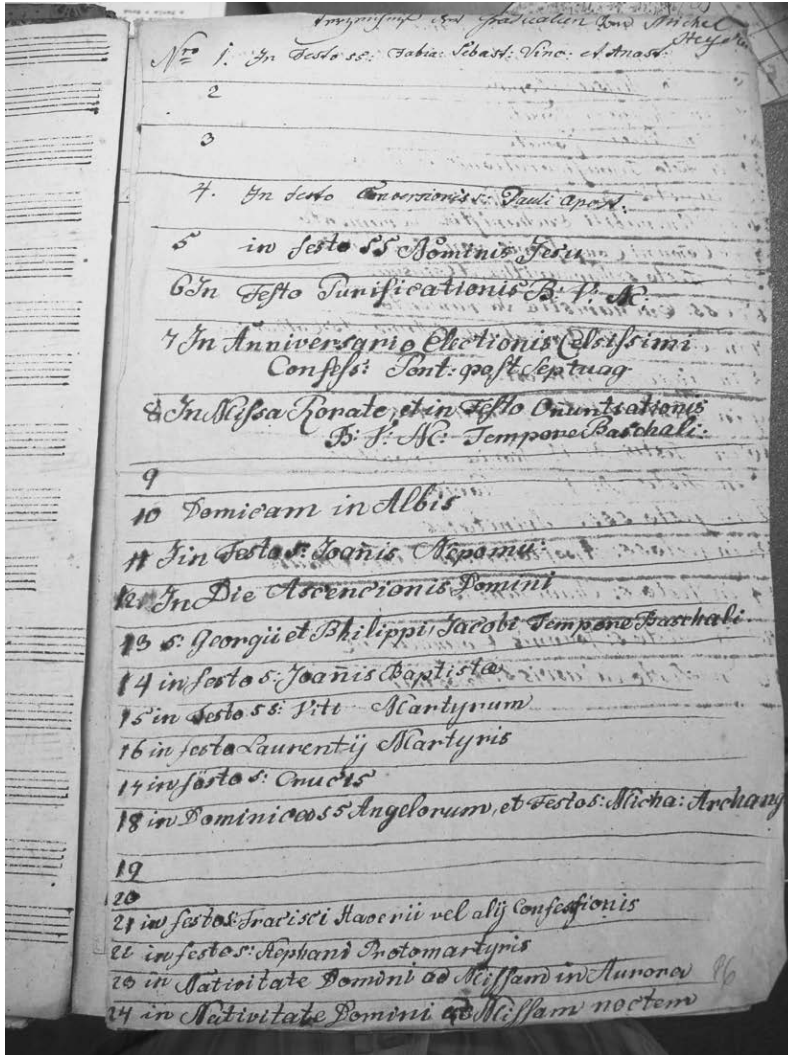 der Gradualien von Michel
Heyden
Nro 1. In Festo ss: Fabia: Sebast: Vinc: et Anast:
2
3
4. In festo Conversionis s: Pauli Apost:
5 in festo SS Nominis Jesu
6 In Festo Purificationis B: V: M:
7 In Anniversario Electionis Celsissimi
Confess: Pont: post Septuag
8 In Missa Rorate, et in Festo Anuntiationis
B: V: M: Tempore Paschali:
9
10 Domicam in Albis
11 Jin Festo s: Joan̄is Nepomu:
12 In Die Ascencionis Domini
13 s: Georgii et Philippi, Jacobi Tempore Paschali.
14 in festo s: Joan̄is Baptistæ
15 in Festo ss: Viti Martyrum
16 in festo Laurentij Martyris
17 in festo s: Crucis
18 in Dominica ss Angelorum, et Festo s: Micha: Archang
19
20
21 in festo s: Fracisci Xaverii vel alij Confessionis
22 in festo s: Stephani Protomartyris
23 in Nativitate Domini ad Missam in Aurora 86
24 in Nativitate Domini ad Missam noctem